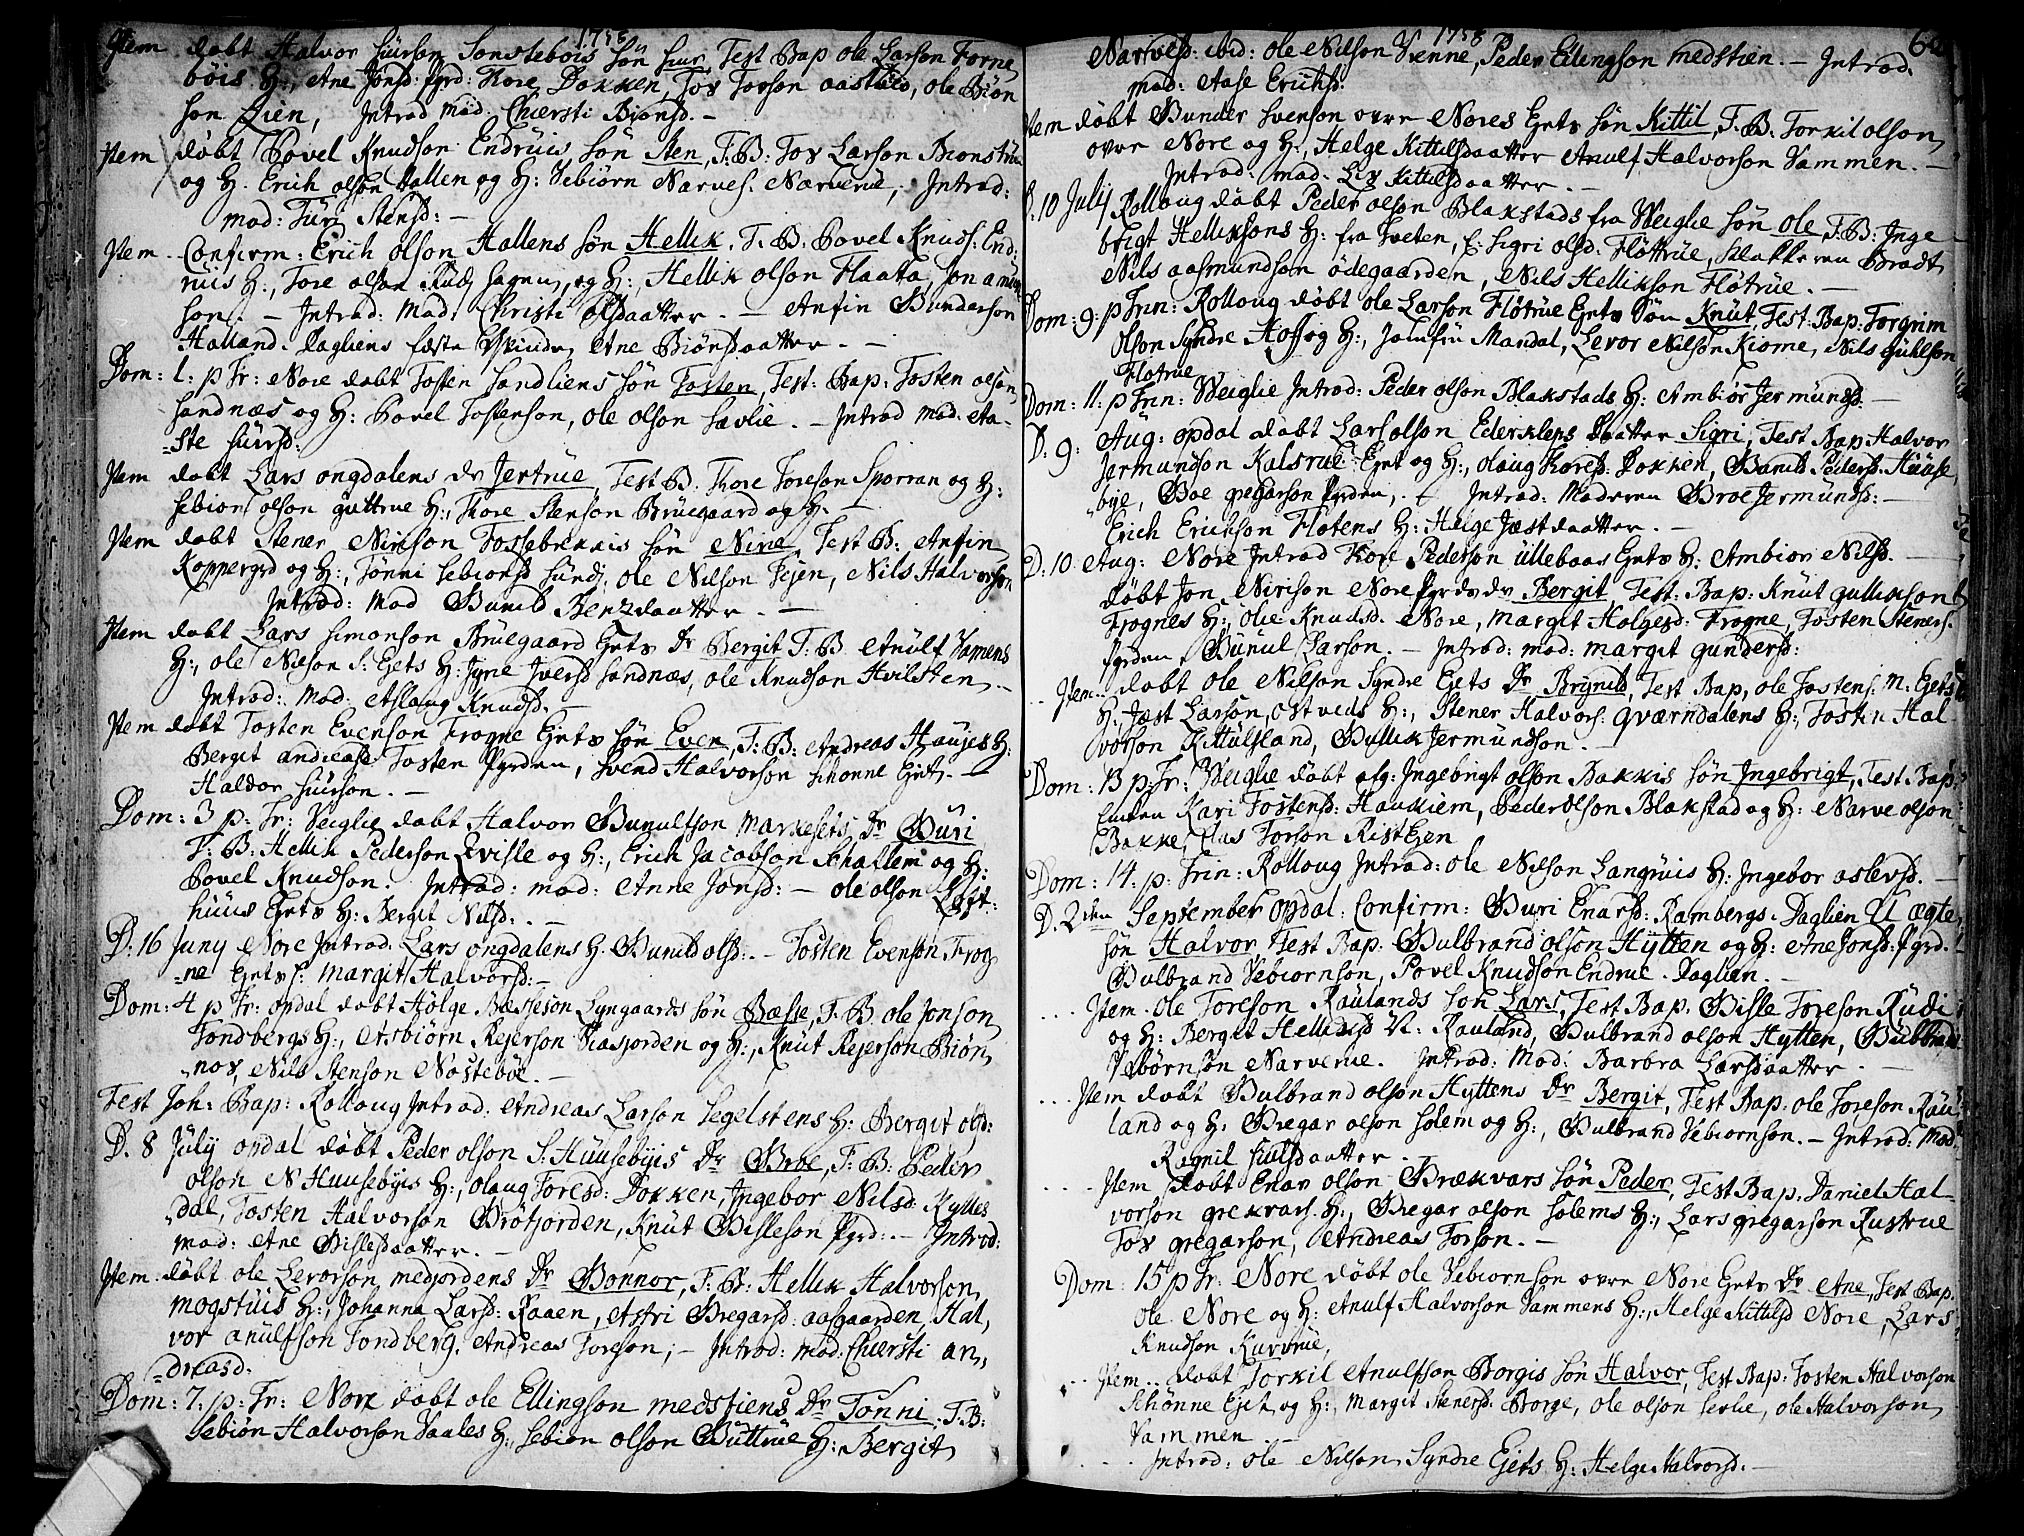 1758
Item døbt Halvor Siursøn Sønstebøis søn Siur, Test Bap Ole Larsøn Forne
bøis H:, Ane Jonsd: Pgrd: Kore Dokken, Tov Torson Aasland, Ole Biøn
søn Lien, Introd mod: Chiersti Biønsd. –
Item døbt Povel Knudsøn Endruis søn Sten, T.B: Tov Larsøn Bionstuu
og H. Erich Olsøn Hallen og H: Vebiørn Narves: Narverue, Introd:
mod: Turi Stensd: –
Item Confirm: Erich Olsøn Hallens søn Hellik. T.B. Povel Knuds: End:
ruis H:, Tore Olsøn Rud, Hagen, og H:, Hellik Olsøn Flaata, Jon Amund
søn. – Introd: Mad: Christi Olsdaatter. – Anfin Gunderson
Halland. Dagliens fæste Qvinde Ane Biønsdaatter. –
Dom: 1: p Tr: Nore døbt Tosten Sandliens søn Tosten, Test: Bap: Tosten Olsøn
Sandnæs og H: Povel Tostenson, Ole Olsøn Sævlie. – Introd mod: Aa-
ste Siursd:
Item døbt Lars Ongdalens Dr Jertrue, Test B. Thore Toreson Sporran og H:
Sebion Olsøn Guttrue H:, Thore Stenson Bruegaard og H. –
Item døbt Stener Nirison Fossebrekkis søn Nire, Test B: Anfin
Koppergrd og H:, Tønni Sebionsd Sundj, Ole Nilson Tejen, Nils Halvorson
Introd: Mod Gunild Benzdaatter. –
Item døbt Lars Simonson Bruegaard Ejets Dr Bergit T.B Anulf Vamens
H:, Ole Nilson S: Ejets H: Jyne Iversd Sandnæs, Ole Knudson Hvilsten –
Introd: Mod: Aslaug Knudsd. –
Item døbt Tosten Evenson Frogne Ejets søn Even, T.B: Andreas Haugies H:
Bergit Andreasd Tosten Pgrden, Svend Halvorson Schonne Ejet, –
Haldor Siurson. –
Dom: 3 p: Tr: Veiglie døbt Halvor Gunulfson Markesets Dr Guri
T.B: Hellik Pederson Qvisle og H:, Erich Jacobson Schallem og H:
Povel Knudson. Introd: mod: Anne Jonsd: – Ole Olson Loft-
huus Ejets H: Bergit Nilsd: –
D: 16 Juny Nore Introd: Lars Ongdalens H: Gunild Olsd: – Tosten Evenson Frog
ne Ejets H: Margit Halvorsd: –
Dom: 4 p Tr: Opdal døbt Holge Bæsseson Lyngaards søn Bæsse, T.B. Ole Jonson
Tondbergs H:, Asbiørn Rejerson Viasjorden og H:, Knut Rejerson Biøn,
nos, Nils Stenson Nøstebøe. –
Fest Joh: Bap: Rolloug Introd: Andreas Larson Segelstens H: Bergit Olsd:
D. 8 July Opdal døbt Peder Olson S: Huusebyis Dr Groe, T.B: Peder
Olson N Huusebyis H:, Olaug Toresd: Dokken, Ingebor Nilsd: Kylles
dal, Tosten Halvorson Brøtjorden, Knut Gisleson Pgrd: – Introd:
mod: Ane Gislesdaatter. –
Item: døbt Ole Levorson Medjordens Dr Gonnor, T.B: Hellik Halvorson
Mogstuis H:, Johanna Larsd: Raaen, Astri Gregarsd: Aasgaarden, Hal,
vor Anulfson Tondberg, Andreas Toreson, – Introd: mod: Chiersti An,
dreasd:
Dom: 7: p: Tr: Nore døbt Ole Ellingson Medstiens Dr Tønni, T.B:
Sebiøn Halvorson Vaales H:, Sebion Olson Guttrue H: Bergit
1758
Narvesd: ibid: Ole Nilson Vienne, Peder Ellingson Medstien. – Introd:
mod: Aase Erichsd:
Item døbt Gunder Svenson Ovre Nores Ejets søn Kittil, T.B: Torkil Olson
Ovre Nore og H:, Helge Kittilsdaatter Anulf Halvorson Vammen. –
Introd: mod: Liv Kittilsdaatter. –
D. 10 July Rolloug døbt Peder Olson Blakstads fra Weiglie søn Ole, T.B: Inge
brigt Helliksons H: fra Tveten, E: Sigri Olsd: Fløttrue, Klokkeren Bradt
Nils Aasmundson Ødegaarden, Nils Hellikson Fløtrue. –
Dom: 9: p Trin: Rolloug døbt Ole Larson Fløtrue Ejets Søn Knut, Test: Bap: Torgrim
Olson Syndre Hoff og H:, Jomfru Mandal, Levor Nilson Kiome, Nils Gulchson
Fløtrue
Dom: 11: p Trin: Weiglie Introd: Peder Olson Blakstads H: Ambiør Jermundsd: –
D: 9: Aug: Opdal døbt Lars Olson Ederkleps Daatter Sigri, Test Bap Halvor
Jermundson Kalsrue Ejet og H:, Olaug Koresd: Dokken, Gunild Pedersd: Huuse
bye, Boe Gregarson Pgrden, – Introd: Moderen Groe Jermundsd: –
Erich Erichson Flotens H: Helge Jæstdaatter. –
D: 10 Aug: Nore Introd Kore Pederson Ullebaas Ejets H: Ambior Nilsd. –
døbt Jon Nirison Nore Pgrds Dr Bergit, Test: Bap: Knut Gullikson
Frognes H:, Olie Knudsd. Nore, Margit Holgesd: Frogne, Tosten Steners:
Pgrden, Gunul Larson. – Introd: mod: Margit Gundersd:
Item.. døbt Ole Nilson Syndre Ejets Dr Brynild, Test Bap, Ole Tostens: N: Ejets
H: Jæst Larson, Ostveds H:, Stener Halvors: Qværndalens H:, Tosten Hal-
vorson Kittulsland, Gullik Jermundson. –
Dom: 13 p Tr: Weiglie døbt afg: Ingebrigt Olson Bakkis søn Ingebrigt, Test Bap:
Enken Kari Tostensd: Haukiem, Peder Olson Blakstad og H: Narve Olson
Bakke, Clas Torson Ristejen
Dom: 14: p: Trin: Rolloug Introd: Ole Nilson Langruis H: Ingebor Aslevsd. –
D. 2den September Opdal: Confirm: Guri Enarsd: Rambergs-Daglien U ægte
søn Halvor Test Bap: Gulbrand Olson Hytten og H: Ane Jonsd: Pgrd.
Gulbrand Vebiornson, Povel Knudson Endrue. Daglien. –
.... Item. Ole Toreson Raulands søn Lars, Test Bap. Gisle Toreson Rudi
og H: Bergit Helliksd N: Rauland, Gulbrand Olson Hytten, Gulbrand
Vebørnson Narverue. Introd: Mod: Barbra Larsdaatter. –
.... Item døbt Gulbrand Olson Hyttens Dr Bergit, Test Bap: Ole Toreson Rau
land og H: Gregar Olson Solem og H:, Gulbrand Vebiornson. – Introd: Mod:
Ragnil Siulsdaatter. –
.... Item døbt Enar Olson Grækvars søn Peder, Test Bap, Daniel Hal-
vorson Grekvars H:, Gregar Olson Solems H:, Lars Gregarson Rustrue
Tov Gregarson, Andreas Torson. –
Dom: 15 p Tr: Nore døbt Ole Vebiornson Ovre Nore Ejets Dr Ane, Test Bap.
Ole Nore og H: Anulf Halvorson Vammens H:, Helge Kittulsd Nore, Lars
Knudson Kurvrue,
... Item.. døbt Torkil Anulfson Borgis søn Halvor, Test Bap: Tosten Halvorson
Schønne Ejet og H:, Margit Stenersd: Borge, Ole Olson Sevlie, Ole Halvorson
Vammen –
.... Introd: Ole Nilson Syndre Ejets H: Helge Halvorsd. –